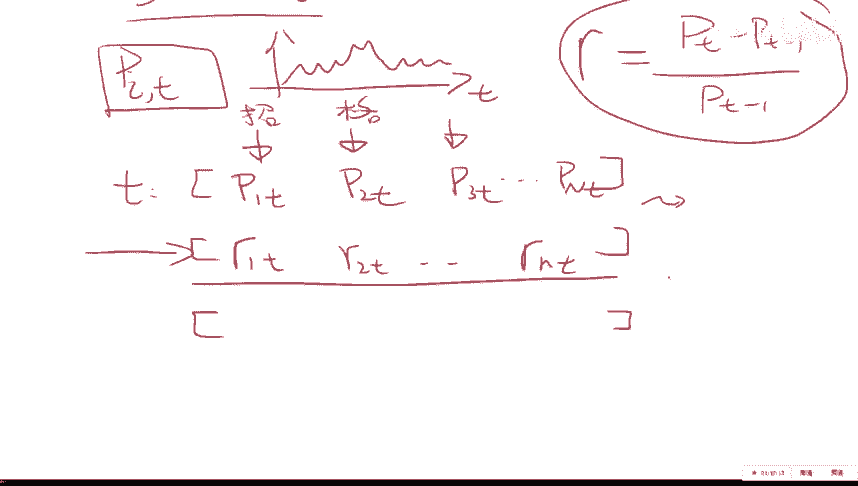 P_{i,t}
t
r = \frac{P_t - P_{t-1}}{P_{t-1}}
招。
t: [ P_{1t} P_{2t} P_{3t} ... P_{Nt} ]
[ r_{1t} r_{2t} -- r_{nt} ]
[ ]